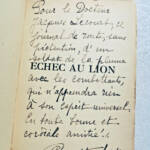 Pour le Docteur
Jacques Lecourt, ce
journal de route, sans
prétention, d'un
soldat de la plume
ECHEC AU LION
avec les combattants,
qui n'apprendra rien
à son esprit universel.
En toute forme et
cordiale amitié